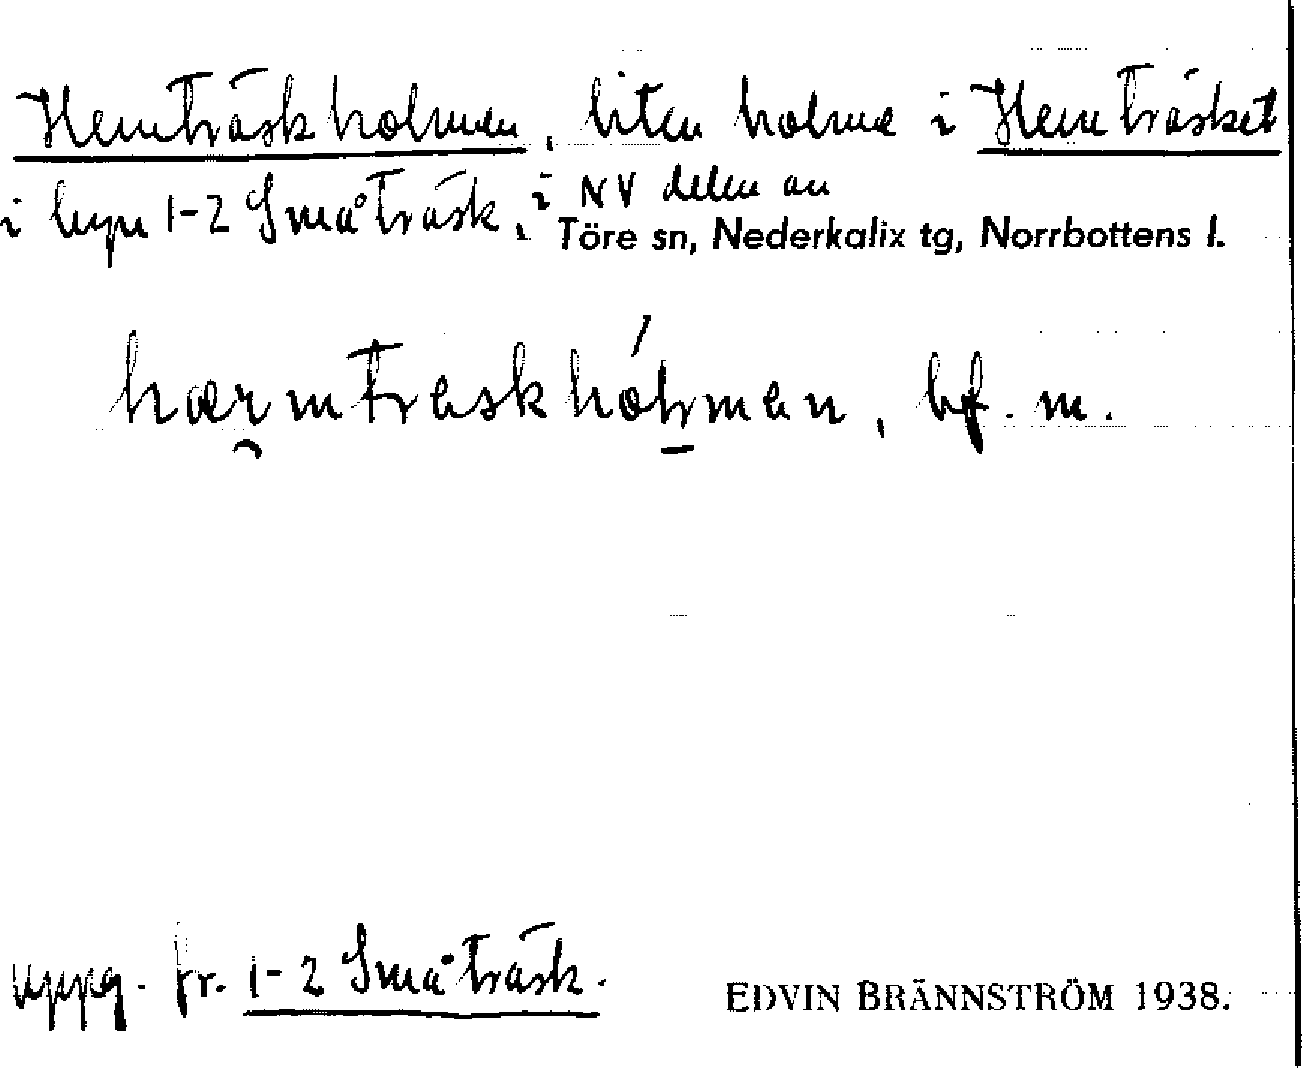 Hemträskholmen, liten holme i Hemträsket
i byn 1-2 Småträsk, i NV delen av
Töre sn, Nederkalix tg, Norrbottens l.
hærmtraskhólman, bf. m.
uppg. fr. 1-2 Småträsk.
EDVIN BRÄNNSTRÖM 1938.